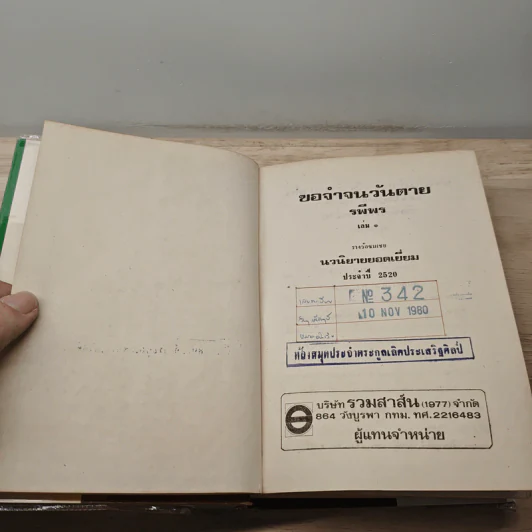 ขอจำจนวันตาย
รพีพร
เล่ม ๑
รางวัลชมเชย
นวนิยายยอดเยี่ยม
ประจำปี 2520
เลขทะเบียน
Nº 342
10 NOV 1980
ห้องสมุดประจำตระกูลเลิศประเสริฐศิลป์
บริษัท รวมสาส์น (1977) จำกัด
864 วังบูรพา กทม. ทศ.2216483
ผู้แทนจำหน่าย